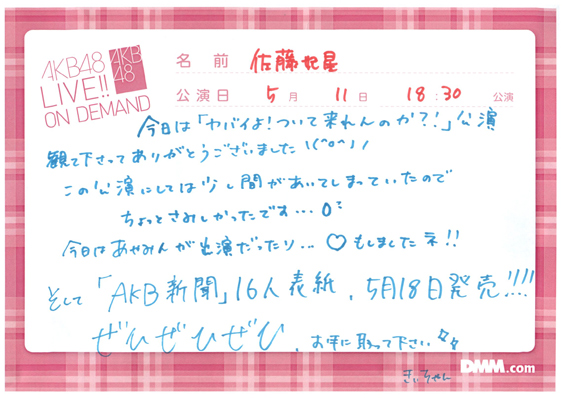 AKB48
LIVE!!
ON DEMAND
AKB
48
名前 佐藤妃星
公演日 5月 11日 18:30 公演
今日は「ヤバイよ!ついて来れんのか?!」公演
観て下さってありがとうございました\(^o^)/
この公演にしては少し間があいてしまっていたので
ちょっとさみしかったです...
今日はあやみんが出演だったり... ♡もしましたネ!!
そして「AKB新聞」16人表紙、5月18日発売!!!!
ぜひぜひぜひ、お手に取って下さい
きぃちゃん
DMM.com